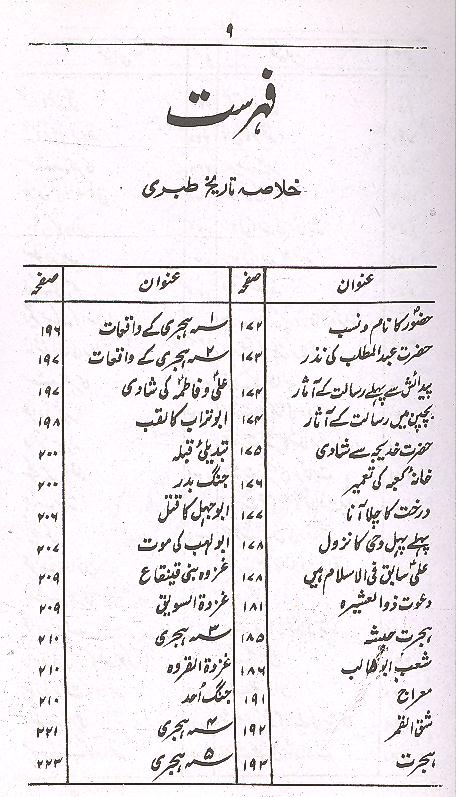 ۹
فہرست
خلاصہ تاریخ طبری
عنوان صفحہ عنوان صفحہ
حضورؐ کا نام و نسب ۱۷۲
حضرت عبدالمطلب کی نذر ۱۷۳
پیدائش سے پہلے رسالت کے آثار ۱۷۴
بچپن میں رسالت کے آثار ۱۷۴
حضرت خدیجہ سے شادی ۱۷۵
خانہ کعبہ کی تعمیر ۱۷۶
درخت کا چلا آنا ۱۷۷
پہلے پہل وحی کا نزول ۱۷۸
علیؑ سابق فی الاسلام ہیں ۱۷۸
دعوت ذوالعشیرہ ۱۸۱
ہجرت حبشہ ۱۸۵
شعب ابوطالب ۱۸۶
معراج ۱۹۱
شق القمر ۱۹۲
ہجرت ۱۹۲
۱ سنہ ہجری کے واقعات ۱۹۶
۲ سنہ ہجری کے واقعات ۱۹۷
علیؑ و فاطمہؑ کی شادی ۱۹۷
ابوتراب کا لقب ۱۹۸
تبدیلیٔ قبلہ ۲۰۰
جنگ بدر ۲۰۰
ابوجہل کا قتل ۲۰۶
ابولہب کی موت ۲۰۷
غزوہ بنی قینقاع ۲۰۹
غزدة السویق ۲۰۹
۳ سنہ ہجری ۲۱۰
غزدة القروہ ۲۱۰
جنگ اُحد ۲۱۰
۴ سنہ ہجری ۲۲۱
۵ سنہ ہجری ۲۲۳